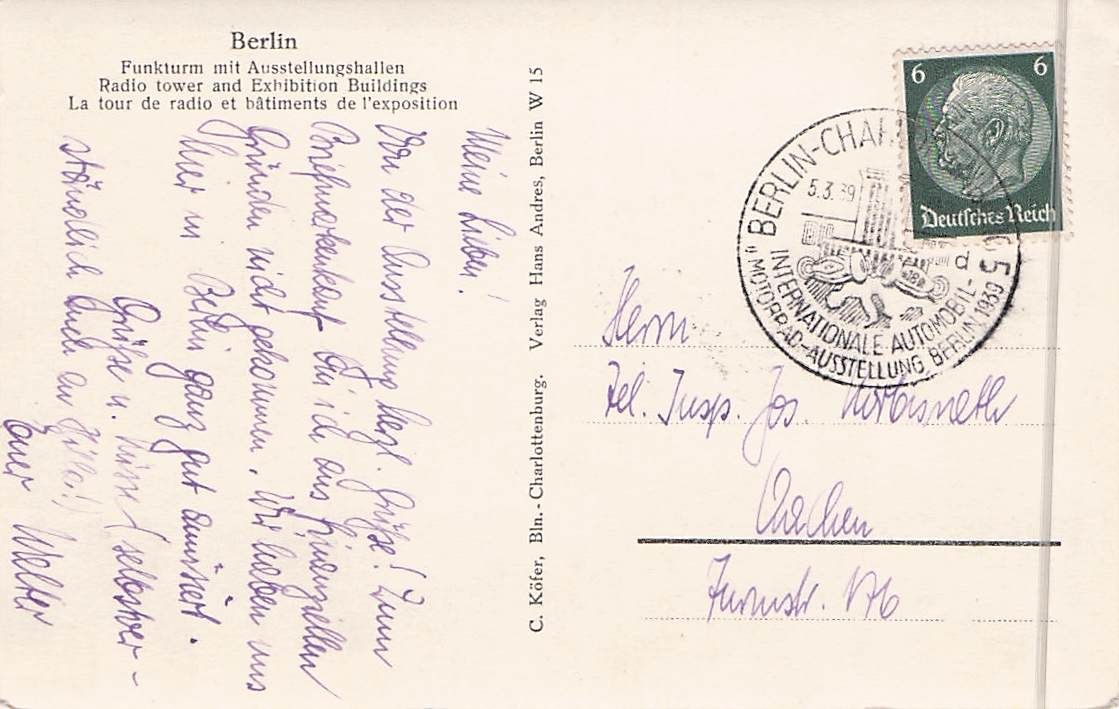 Berlin
Funkturm mit Ausstellungshallen
Radio tower and Exhibition Buildings
La tour de radio et bâtiments de l'exposition
Meine Lieben!
Von der Ausstellung herzl. Grüße! Zum
Briefmarkenkauf bin ich aus finanziellen
Gründen nicht gekommen. Wir haben uns
hier in Berlin ganz gut amüsiert.
Grüße u. Küsse (selbstver-
ständlich auch an Gilla!)
Euer Walter
C. Köfer, Bln.-Charlottenburg. Verlag Hans Andres, Berlin W 15
6 6
Deutsches Reich
BERLIN-CHA 5
5.3.39
d
INTERNATIONALE AUTOMOBIL-
U. MOTORRAD-AUSSTELLUNG, BERLIN 1939
Herrn
Tel. Insp. Jos.
Aachen
Turmstr.